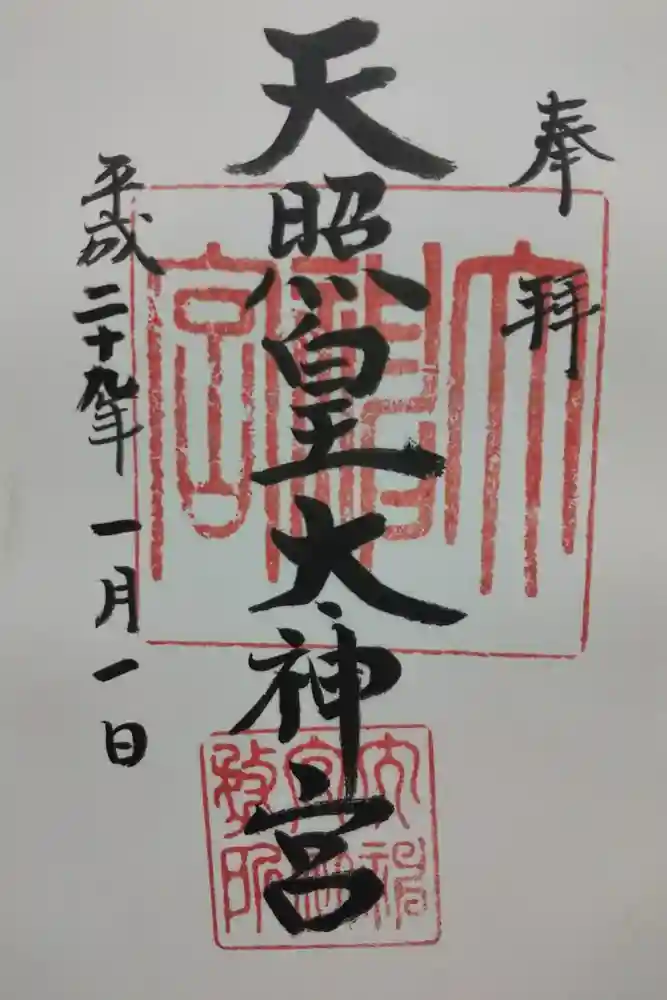 奉拝
天照皇大神宮
平成二十九年一月一日
大神宮